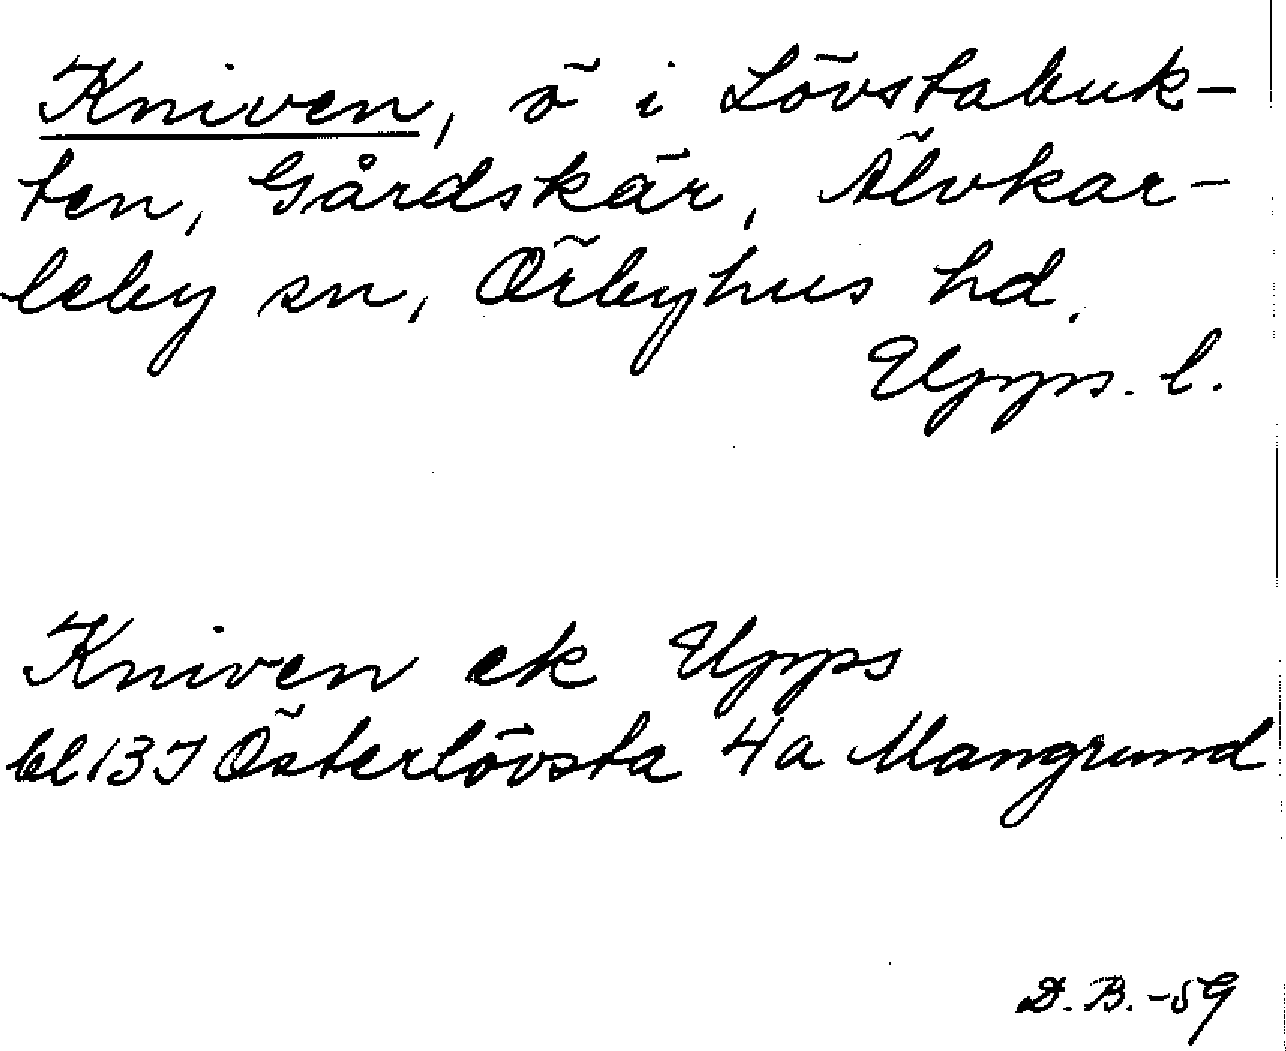 Kniven, ö i Lövstabuk-
ten, Gårdskär, Älvkar-
leby sn, Örbyhus hd.
Upps. l.
Kniven ek Upps
bl 13 I Österlövsta 4a Mangrund
D.B.-59